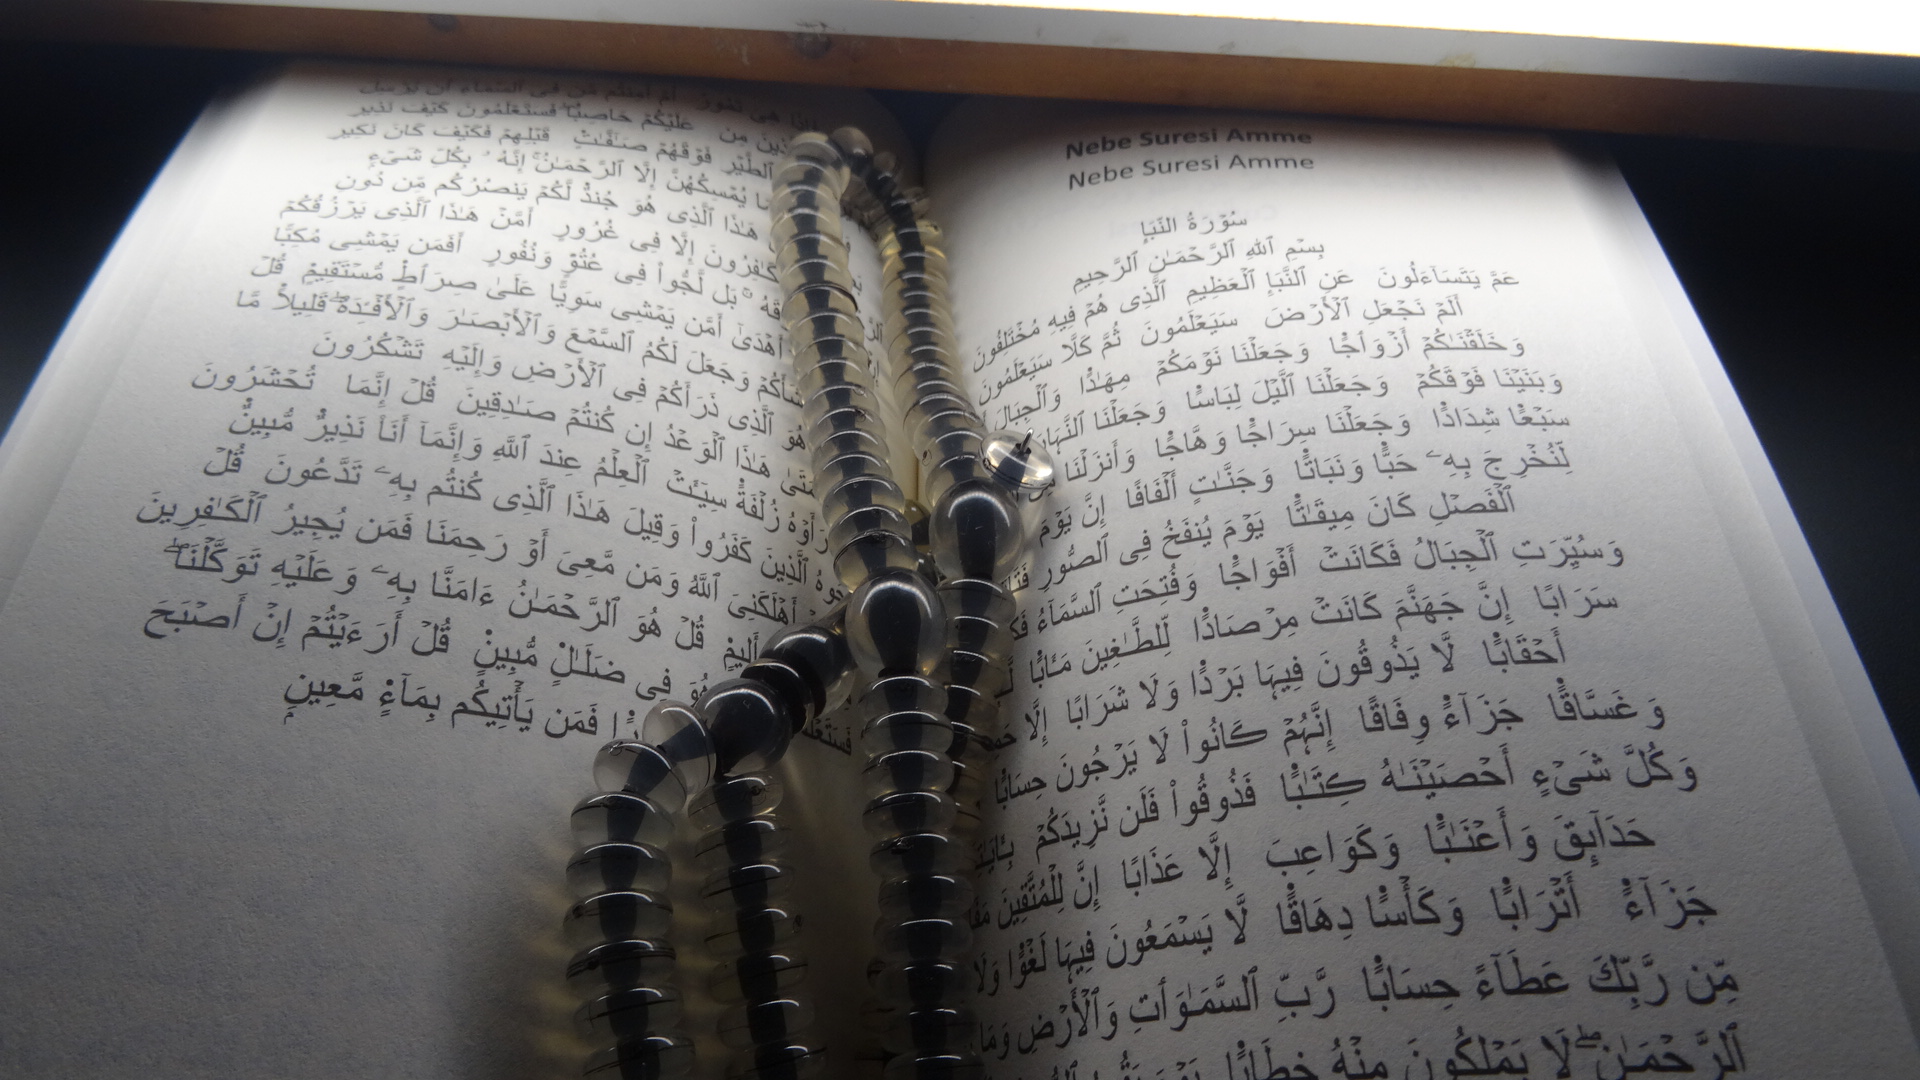 هِىَ تَمُورُ أَمْ أَمِنتُم مَّن فِى ٱلسَّمَآءِ أَن يُرْسِلَ
مِن عَلَيْكُمْ حَاصِبًا ۖ فَسَتَعْلَمُونَ كَيْفَ نَذِيرِ
ٱلطَّيْرِ فَوْقَهُمْ صَـٰٓفَّـٰتٍ قَبْلِهِمْ فَكَيْفَ كَانَ نَكِيرِ
يُمْسِكُهُنَّ إِلَّا ٱلرَّحْمَـٰنُ ۚ إِنَّهُ بِكُلِّ شَىْءٍ
هَـٰذَا ٱلَّذِى هُوَ جُندٌ لَّكُمْ يَنصُرُكُم مِّن دُونِ
إِلَّا فِى غُرُورٍ أَمَّنْ هَـٰذَا ٱلَّذِى يَرْزُقُكُمْ
بَل لَّجُّوا۟ فِى عُتُوٍّ وَنُفُورٍ أَفَمَن يَمْشِى مُكِبًّا
أَهْدَىٰٓ أَمَّن يَمْشِى سَوِيًّا عَلَىٰ صِرَٰطٍ مُّسْتَقِيمٍ قُلْ
وَجَعَلَ لَكُمُ ٱلسَّمْعَ وَٱلْأَبْصَـٰرَ وَٱلْأَفْـِٔدَةَ ۖ قَلِيلًا مَّا
هُوَ ٱلَّذِى ذَرَأَكُمْ فِى ٱلْأَرْضِ وَإِلَيْهِ تَشْكُرُونَ
هَـٰذَا ٱلْوَعْدُ إِن كُنتُمْ صَـٰدِقِينَ قُلْ إِنَّمَا تُحْشَرُونَ
زُلْفَةً سِيٓـَٔتْ ٱلْعِلْمُ عِندَ ٱللَّهِ وَإِنَّمَآ أَنَا۠ نَذِيرٌ مُّبِينٌ
ٱلَّذِينَ كَفَرُوا۟ وَقِيلَ هَـٰذَا ٱلَّذِى كُنتُم بِهِۦ تَدَّعُونَ قُلْ
أَهْلَكَنِىَ ٱللَّهُ وَمَن مَّعِىَ أَوْ رَحِمَنَا فَمَن يُجِيرُ ٱلْكَـٰفِرِينَ
أَلِيمٍ قُلْ هُوَ ٱلرَّحْمَـٰنُ ءَامَنَّا بِهِۦ وَعَلَيْهِ تَوَكَّلْنَا ۖ
فِى ضَلَـٰلٍ مُّبِينٍ قُلْ أَرَءَيْتُمْ إِنْ أَصْبَحَ
فَمَن يَأْتِيكُم بِمَآءٍ مَّعِينٍۭ
Nebe Suresi Amme
Nebe Suresi Amme
سُورَةُ النَّبَإِ
بِسْمِ ٱللَّهِ ٱلرَّحْمَـٰنِ ٱلرَّحِيمِ
عَمَّ يَتَسَآءَلُونَ عَنِ ٱلنَّبَإِ ٱلْعَظِيمِ ٱلَّذِى هُمْ فِيهِ مُخْتَلِفُونَ
أَلَمْ نَجْعَلِ ٱلْأَرْضَ سَيَعْلَمُونَ ثُمَّ كَلَّا سَيَعْلَمُونَ
وَخَلَقْنَـٰكُمْ أَزْوَٰجًا وَجَعَلْنَا نَوْمَكُمْ مِهَـٰدًا وَٱلْجِبَالَ
وَبَنَيْنَا فَوْقَكُمْ وَجَعَلْنَا ٱلَّيْلَ لِبَاسًا وَجَعَلْنَا ٱلنَّهَارَ
سَبْعًا شِدَادًا وَجَعَلْنَا سِرَاجًا وَهَّاجًا وَأَنزَلْنَا
لِّنُخْرِجَ بِهِۦ حَبًّا وَنَبَاتًا وَجَنَّـٰتٍ أَلْفَافًا إِنَّ يَوْمَ
ٱلْفَصْلِ كَانَ مِيقَـٰتًا يَوْمَ يُنفَخُ فِى ٱلصُّورِ
وَسُيِّرَتِ ٱلْجِبَالُ فَكَانَتْ أَفْوَاجًا وَفُتِحَتِ ٱلسَّمَآءُ
سَرَابًا إِنَّ جَهَنَّمَ كَانَتْ مِرْصَادًا لِّلطَّـٰغِينَ مَـَٔابًا
أَحْقَابًا لَّا يَذُوقُونَ فِيهَا بَرْدًا وَلَا شَرَابًا إِلَّا
وَغَسَّاقًا جَزَآءً وِفَاقًا إِنَّهُمْ كَانُوا۟ لَا يَرْجُونَ حِسَابًا
وَكُلَّ شَىْءٍ أَحْصَيْنَـٰهُ كِتَـٰبًا فَذُوقُوا۟ فَلَن نَّزِيدَكُمْ
حَدَآئِقَ وَأَعْنَـٰبًا وَكَوَاعِبَ إِلَّا عَذَابًا إِنَّ لِلْمُتَّقِينَ
جَزَآءً أَتْرَابًا وَكَأْسًا دِهَاقًا لَّا يَسْمَعُونَ فِيهَا لَغْوًا وَلَا
مِّن رَّبِّكَ عَطَآءً حِسَابًا رَّبِّ ٱلسَّمَـٰوَٰتِ وَٱلْأَرْضِ وَمَا
ٱلرَّحْمَـٰنِ ۖ لَا يَمْلِكُونَ مِنْهُ خِطَابًا